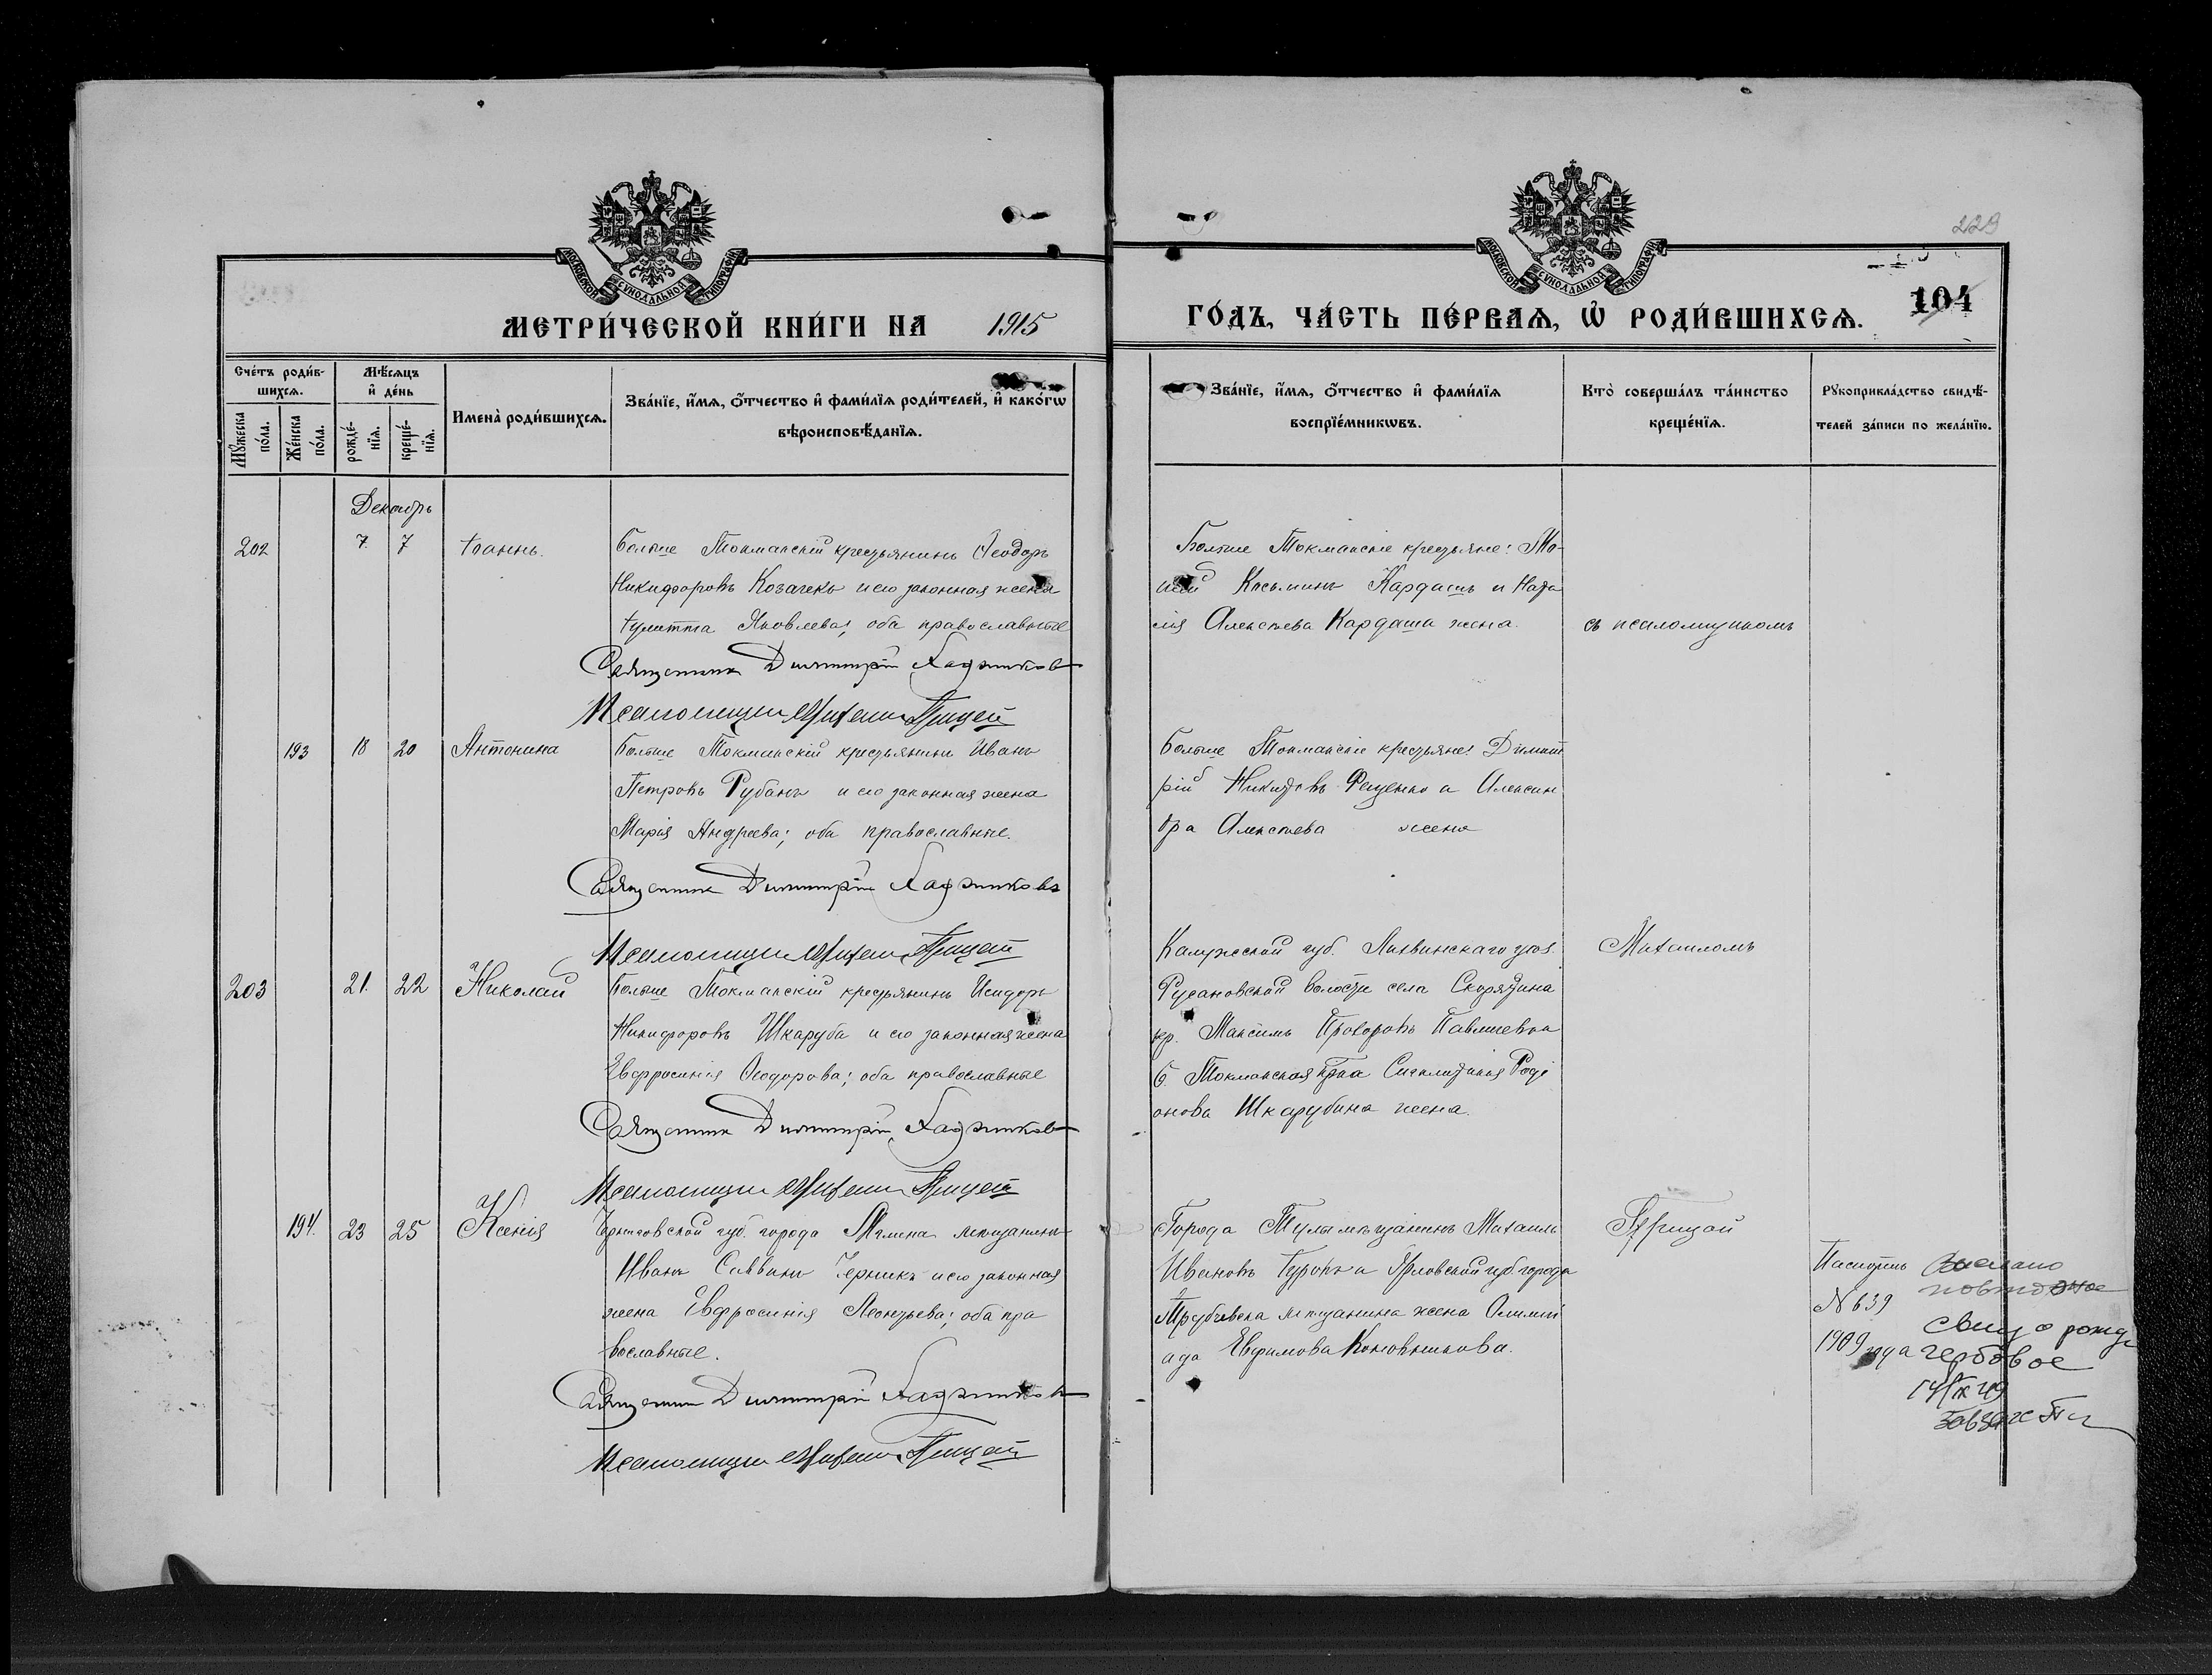 229
МОСКОВСКОЙ СѴНОДАЛЬНОЙ ТИПОГРАФІИ
МОСКОВСКОЙ СѴНОДАЛЬНОЙ ТИПОГРАФІИ
МЕТРИ́ЧЕСКОЙ КНИ́ГИ НА 1915
ГО́ДЪ, ЧА́СТЬ ПЕ́РВАѦ, Ѡ҆ РОДИ́ВШИХСѦ. 104
Сче́тъ роди́в-
шихсѧ.
Мꙋ́жеска
по́ла.
Же́нска
по́ла.
Мѣ́сѧцъ
и҆ де́нь
рожде́-
нїѧ.
креще́-
нїѧ.
Имена̀ роди́вшихсѧ.
Зва́нїе, и҆́мѧ, ѻ҆́тчество и҆ фами́лїѧ роди́телей, и҆ како́гѡ
вѣроисповѣ́данїѧ.
Зва́нїе, и҆́мѧ, ѻ҆́тчество и҆ фами́лїѧ
воспрїе́мникѡвъ.
Кто̀ соверша́лъ та́инство
креще́нїѧ.
Рꙋкоприкла́дство свидѣ́-
телей за́писи по жела́нїю.
Декабрь
202 7. 7 Іоаннъ.
Больше Токмакскій крестьянинъ Ѳеодоръ
Никифоровъ Козачекъ и его законная жена
Іулитта Яковлева; оба православные
Священникъ Димитрій Хаджиновъ
Псаломщикъ Грицай
Больше Токмакскіе крестьяне: Мо-
исей Косьминъ Кардашъ и Ната
лія Алексѣева Кардаша жена.
съ псаломщикомъ
193 18 20 Антонина
Больше Токмакскій крестьянинъ Иванъ
Петровъ Рубанъ и его законная жена
Марія Андреева; оба православные.
Священникъ Димитрій Хаджиновъ
Псаломщикъ Грицай
Больше Токмакскіе крестьяне: Димит
рій Никитовъ Фещенко и Алексан
дра Алексѣева жена
203 21. 22 Николай
Больше Токмакскій крестьянинъ Исидоръ
Никифоровъ Шкаруба и его законная жена
Евфросинія Ѳеодорова; оба православные
Священникъ Димитрій Хаджиновъ
Псаломщикъ Грицай
Калужской губ. Лихвинскаго уѣз.
Русановской волости села
кр. Максимъ Прохоровъ
Б. Токмакская Роді
онова Шкарубина жена.
Михаиломъ
194. 23 25 Ксенія
Черниговской губ. города Мглина мѣщанинъ
Иванъ Саввинъ Черникъ и его законная
жена Евфросинія Леонтьева; оба пра
вославные.
Священникъ Димитрій Хаджиновъ
Псаломщикъ Грицай
Города Тулы мѣщанинъ Михаилъ
Ивановъ и Орловской губ. города
Трубчевска мѣщанина жена Олимпі
ада Евфимова Коновникова.
Грицай
Паспортъ
N 639
1909 года
повторное
о рожд
гербовое